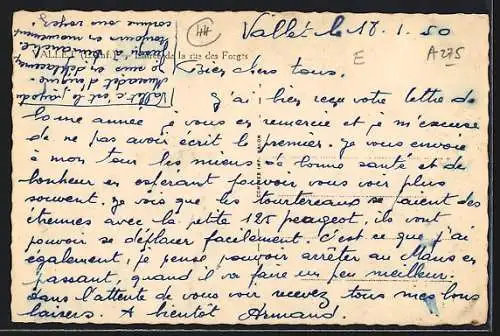 Vallet le 18.1.50
44
E
A275
VALLET (L.-Inf.) - Entrée de la rue des Forges
Bien chers tous.
J'ai bien reçu votre lettre de
bonne année je vous en remercie et je m'excuse
de ne pas avoir écrit le premier. Je vous envoie
à mon tour les miens de bonne santé et de
bonheur en espérant pouvoir vous voir plus
souvent. Je vois que les tourtereaux se paient des
étrennes avec la petite 125 peugeot, ils vont
pouvoir se déplacer facilement. c'est ce que j'ai
également, je pense pouvoir arrêter au Mans en
passant, quand il va faire un peu meilleur.
dans l'attente de vous voir recevez tous mes bons
baisers. A bientôt Armand.
Vallet c'est le pays du
Muscadet
je suis en déplacement
jusqu'à dimanche
toujours en mouvement
comme vous voyez